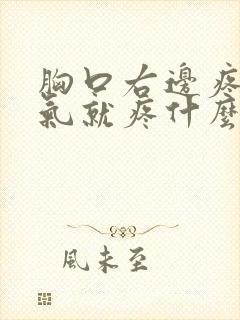 胸口右邊疼
氣就疼什麼
風未至